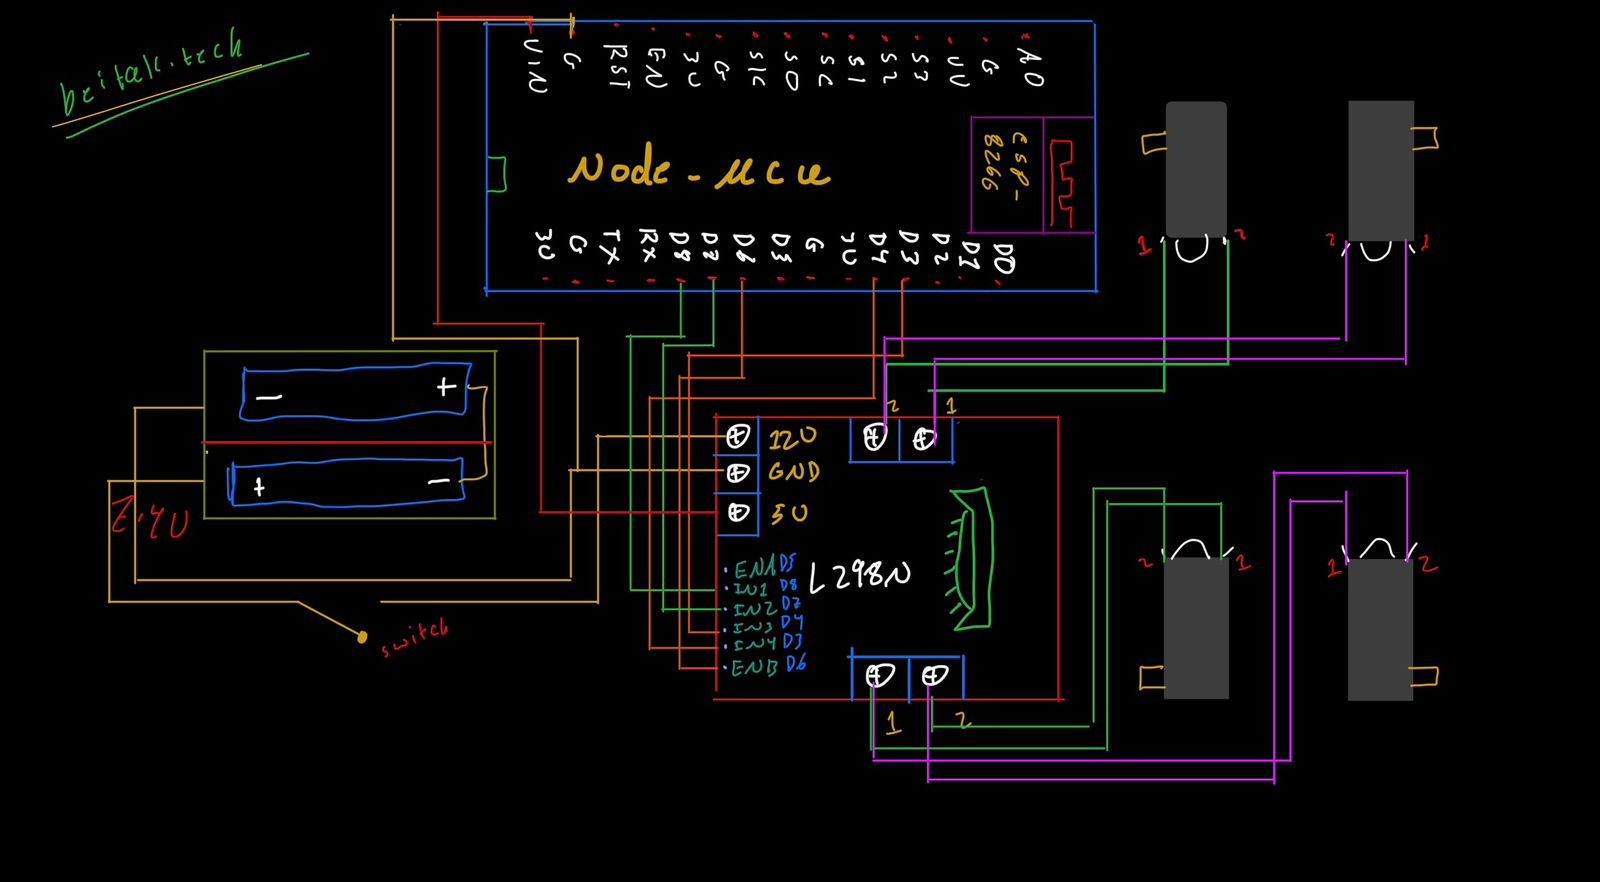 beitak.tech
VIN G RST EN 3V G SK SO SC S1 S2 S3 VV G A0
Node-MCU
ESP-
8266
3V G TX RX D8 D7 D6 D5 G 3V D4 D3 D2 D1 D0
1 2
2 1
- +
+ -
7.4V
switch
2 1
12V
GND
5V
L298N
ENA D5
IN1 D8
IN2 D7
IN3 D4
IN4 D3
ENB D6
1 2
2 1
1 2